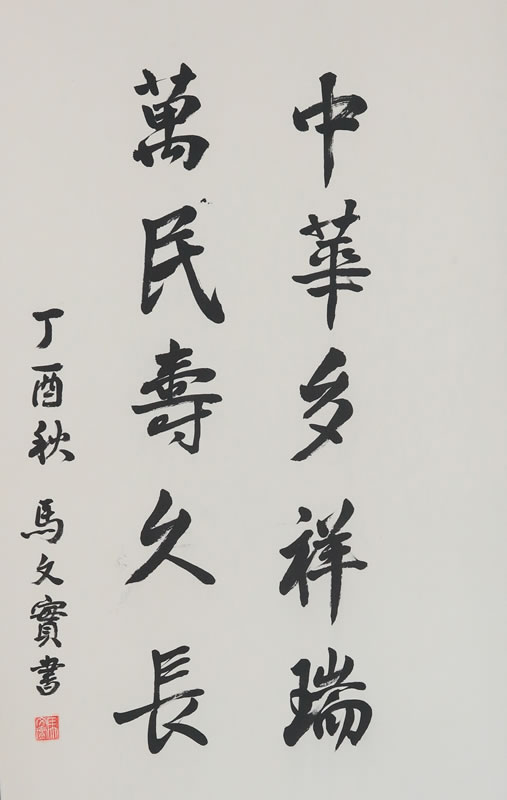 中華多祥瑞
萬民壽久長
丁酉秋 馬文實書